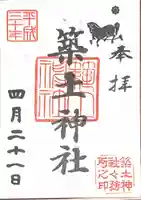 奉拝
築土神社
平成
三十年
四月二十一日
築土神
社々務
所之印